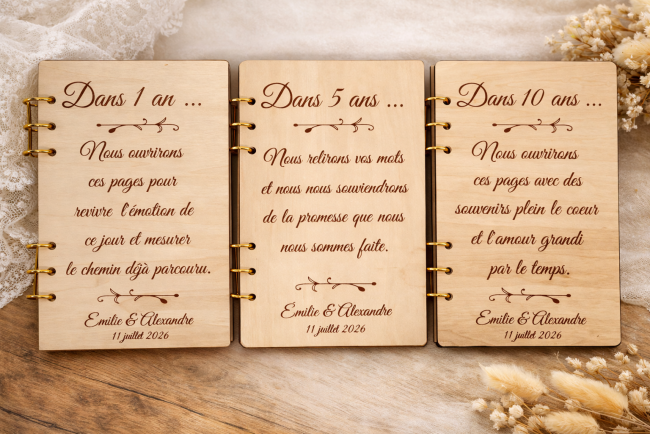 Dans 1 an ...
Nous ouvrirons
ces pages pour
revivre l'émotion de
ce jour et mesurer
le chemin déjà parcouru.
Emilie & Alexandre
11 juillet 2026
Dans 5 ans ...
Nous relirons vos mots
et nous nous souviendrons
de la promesse que nous
nous sommes faite.
Emilie & Alexandre
11 juillet 2026
Dans 10 ans ...
Nous ouvrirons
ces pages avec des
souvenirs plein le coeur
et l'amour grandi
par le temps.
Emilie & Alexandre
11 juillet 2026